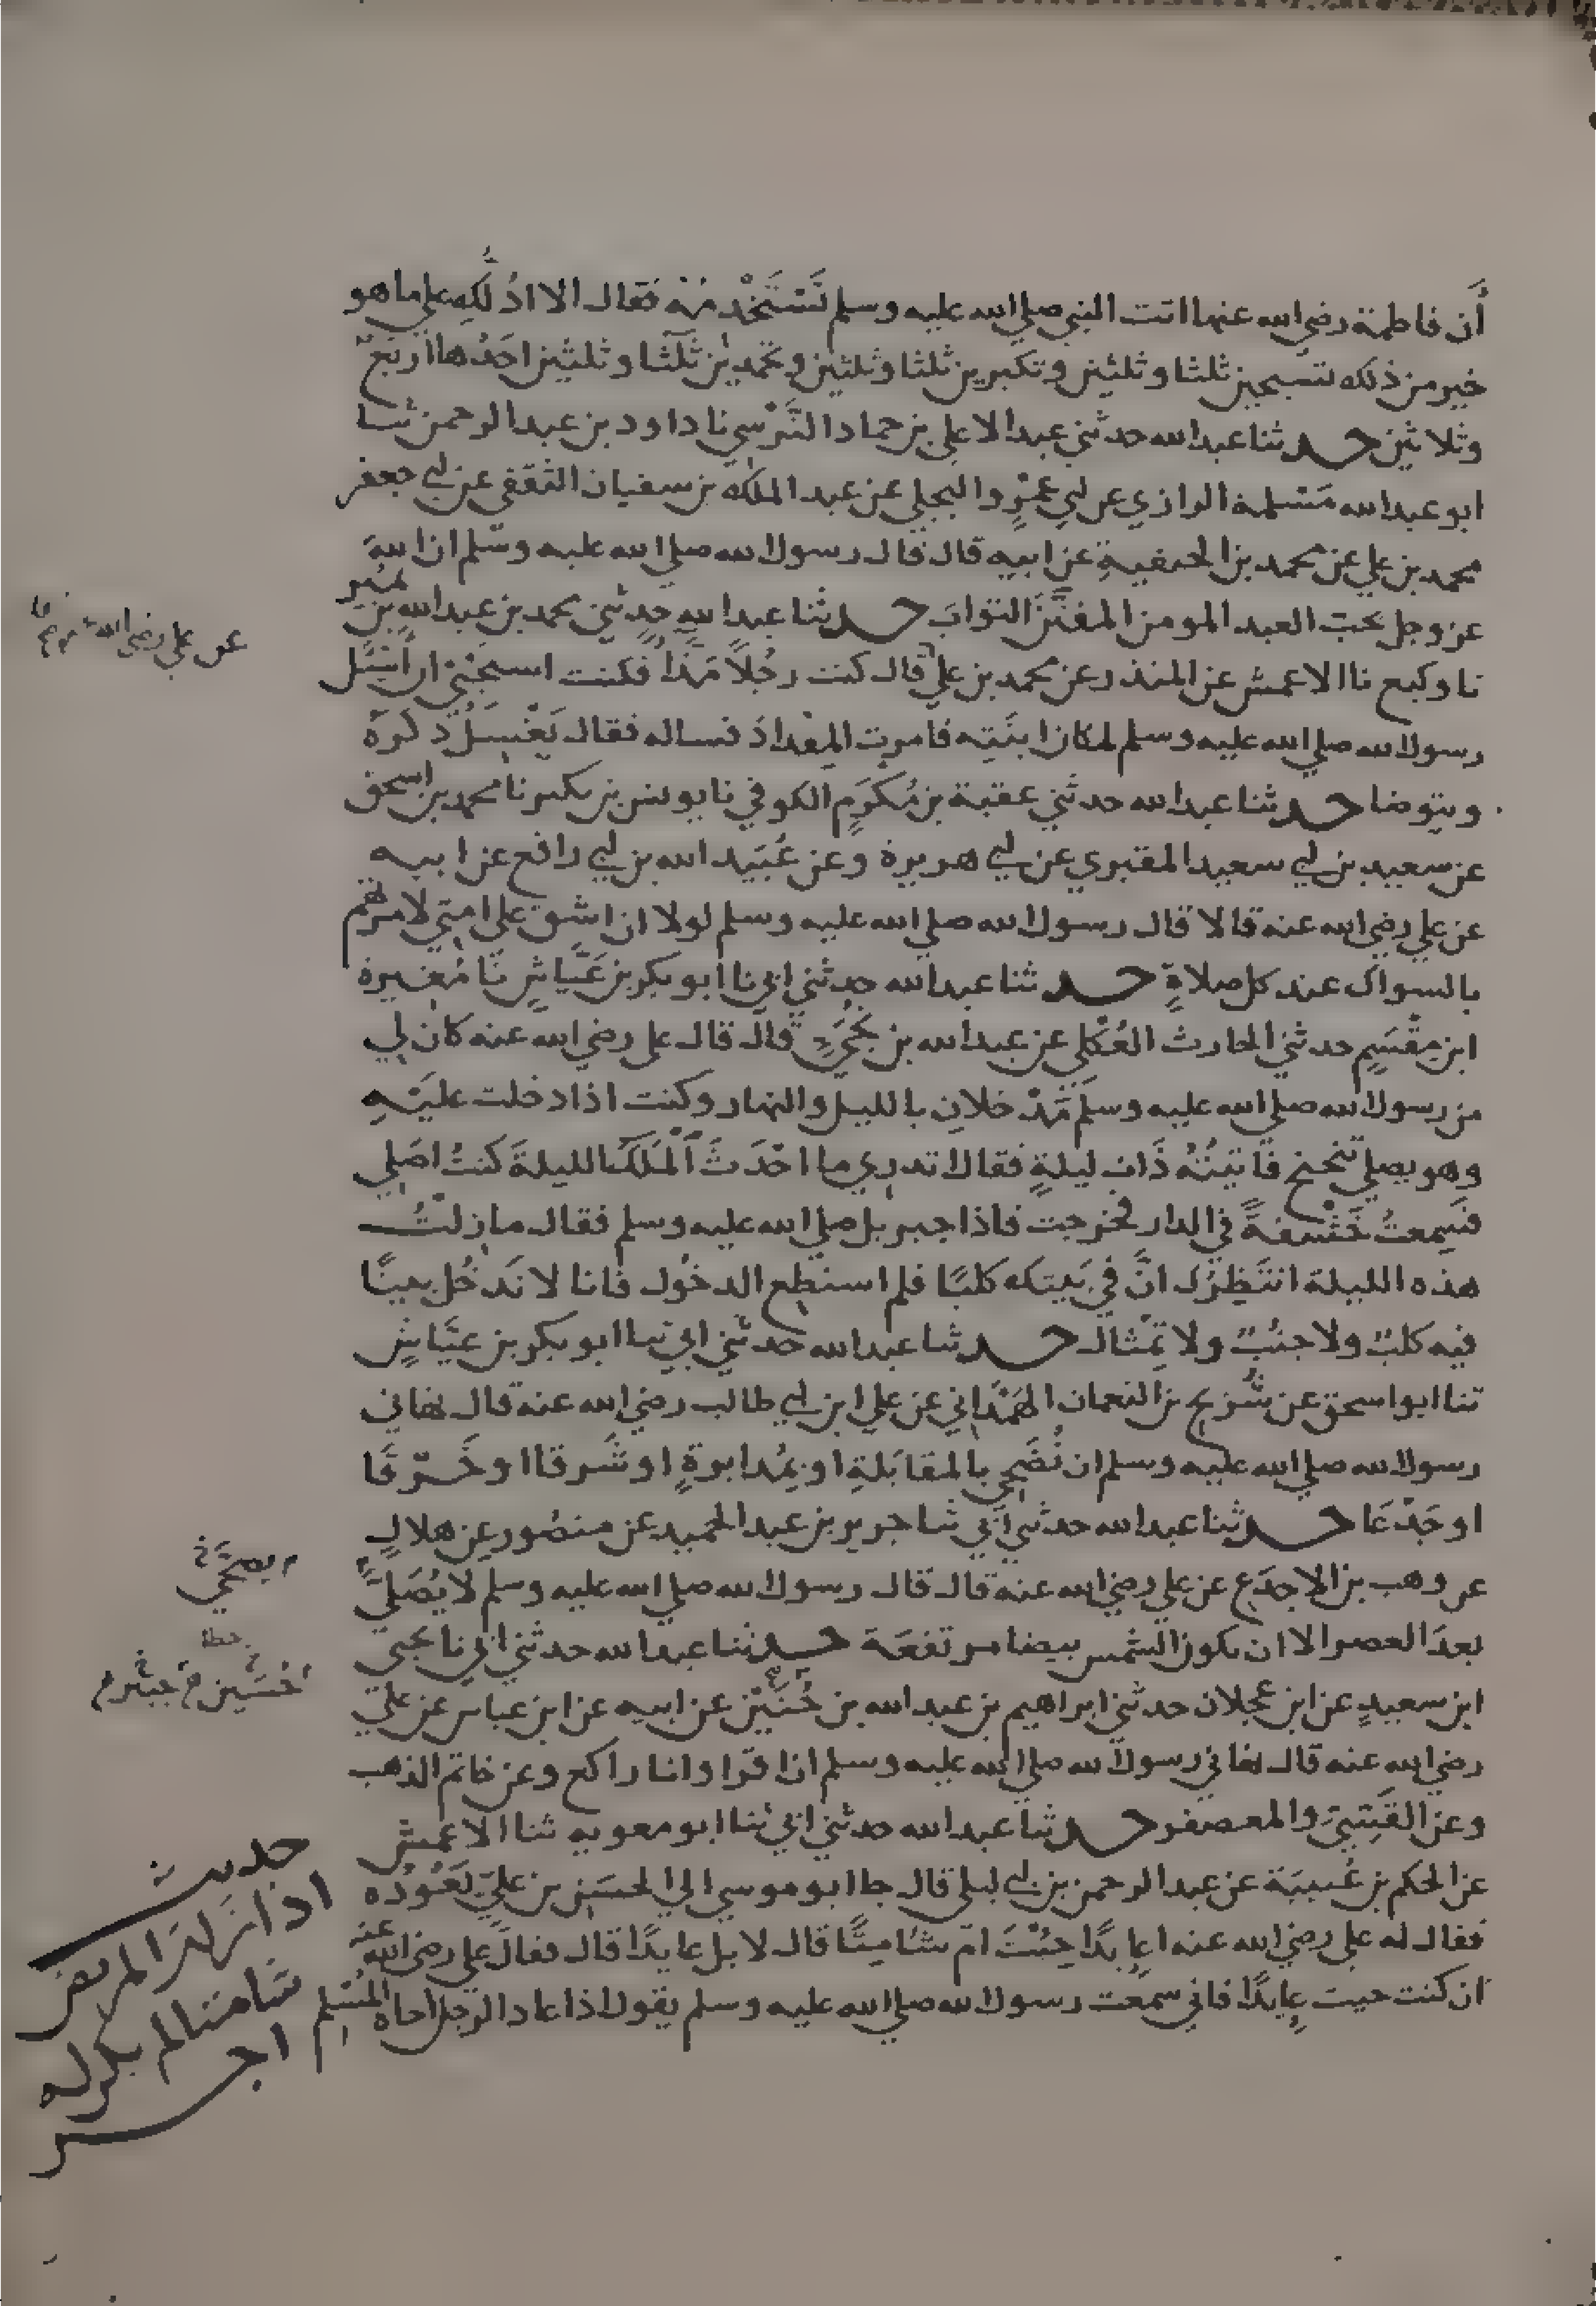 أن فاطمة رضي الله عنها اتت النبي صلي الله عليه وسلم تَسْتَخْدِمُهُ فقال الا ادُلُّكِ علي ما هو
خير من ذلك تسبحين ثلثا وثلثين وتكبرين ثلثا وثلثين وتحمدين ثَلثا وثلثين احَدُها اربَعٌ
وثلاثين حدثنا عبد الله حدثني عبد الاعلي بن حماد النَّرْسِي نا داود بن عبد الرحمن ثنا
ابو عبد الله مَسْلمة الرازي عن ابي عَمْرٍو البجلي عن عبد الملك بن سفيان الثقفي عن ابي جعفر
محمد بن علي عن محمد بن الحنفية عن ابيه قال قال رسول الله صلي الله عليه وسلم ان الله
عز وجل يحب العبد المومن المفتَّنَ التوابَ حدثنا عبد الله حدثني محمد بن عبد الله بن نمير
نا وكيع نا الاعمش عن المنذر عن محمد بن علي قال كنت رجُلاً مَذَّاً فكنت استحيي ان اسْئل
رسول الله صلي الله عليه وسلم لمكان ابنَتِه فامرت المِقدادَ فساله فقال يَغْسِلُ ذكرَهُ
ويتوضا حدثنا عبد الله حدثني عقبة بن مُكرَمٍ الكوفي نا يونس بن بكير نا محمد بن اسحق
عن سعيد بن ابي سعيد المقبري عن ابي هريرة وعن عُبَيد الله بن ابي رافع عن ابيه
عن علي رضي الله عنه قالا قال رسول الله صلي الله عليه وسلم لولا ان اشق علي امتي لامرتهم
بالسواك عند كل صلاةٍ حدثنا عبد الله حدثني ابي نا ابو بكر بن عَيَّاشٍ نا مُغيرة
ابن مِقْسَمٍ حدثني الحارث العُكْلي عن عبد الله بن نُجَيٍّ قال قال علي رضي الله عنه كان لي
من رسول الله صلي الله عليه وسلم مَدْخلانِ بالليل والنهار وكنت اذا دخلت عليْهِ
وهو يصلي تنحنح فاتيتُهُ ذات ليلةٍ فقال اتدري ما احْدَثَ الْمَلَكُ الليلةَ كنتُ اصَلِي
فسَمِعتُ خَشْفةً في الدار فخرجت فاذا جبريل صلي الله عليه وسلم فقال ما زلْتُ
هذه الليلة انتَظِرُك انَّ في بَيتك كلبًا فلم استطع الدخُول فانا لا نَدخُل بيتًا
فيه كلبٌ ولا جنُبٌ ولا تِمْثال حدثنا عبد الله حدثني ابي ثنا ابو بكر بن عيَّاشٍ
ثنا ابو اسحق عن شُرَيح بن النعمان الهَمْدَاني عن علي ابن ابي طالب رضي الله عنه قال نهاني
رسول الله صلي الله عليه وسلم ان نُضَحِّي بالمقابَلةِ او بمُدابرةٍ او شَرقا او خَرْقَا
او جَدْعَا حدثنا عبد الله حدثني أبي ثنا جرير بن عبد الحميد عن منصُور عن هلالٍ
عن وهب بن الاجدَع عن علي رضي الله عنه قال قال رسول الله صلي الله عليه وسلم لا يُصَلِّي
بعدَ العصر الا ان تكون الشمس بيضا مرتفعَة حدثنا عبد الله حدثني ابي نا يحيي
ابن سعيدٍ عن ابن عجلان حدثني ابراهيم بن عبد الله بن حُنَيْنٍ عن ابيه عن ابن عباس عن علي
رضي الله عنه قال نهاني رسول الله صلي الله عليه وسلم ان اقرا وانا راكع وعن خاتم الذهب
وعن القَسِّيّ والمعصفر حدثنا عبد الله حدثني ابي ثنا ابو معويه ثنا الاعمش
عن الحكم بن عُتيبَة عن عبد الرحمن بن ابي ليلي قال جا ابو موسي الي الحسَن بن عليٍّ يَعُودُه
فقال له علي رضي الله عنه اعايدًا جئْتَ امْ شامِتًا قال لا بل عايدًا قال فقال علي رضي الله عنه
ان كنت جيت عايدًا فاني سَمعت رسول الله صلي الله عليه وسلم يقول اذا عاد الرجل اخاه المُسْلِم
عن علي رضي الله
خطا
حديث
اذا نزلت المريض
شامتا لم يكن له
اجر